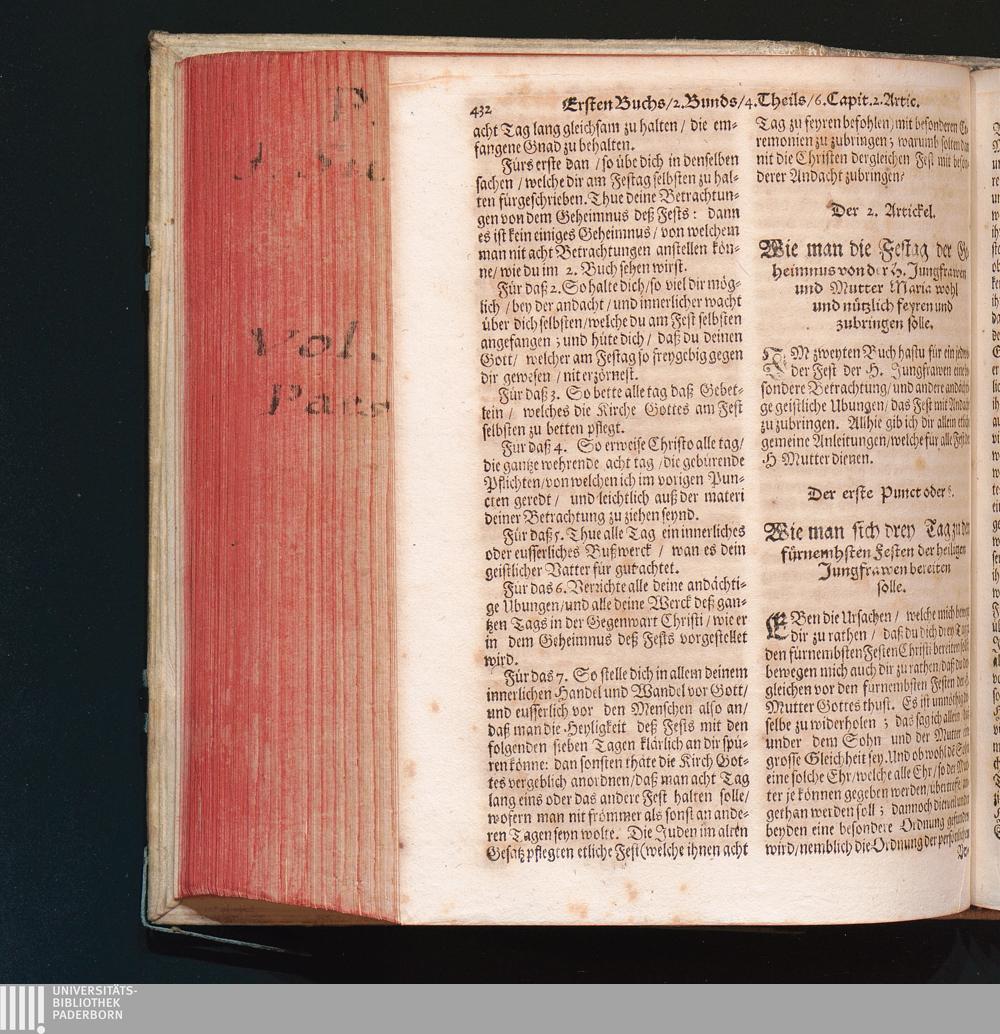 432 Ersten Buchs/2.Bunds/4.Theils/6.Capit.2.Artic.
acht Tag lang gleichsam zu halten / die em-
fangene Gnad zu behalten.
Fürs erste dan / so übe dich in denselben
sachen / welche dir am Festag selbsten zu hal-
ten fürgeschrieben. Thue deine Betrachtun-
gen von dem Geheimnus deß Fests: dann
es ist kein einiges Geheimnus / von welchem
man nit acht Betrachtungen anstellen kön-
ne / wie du im 2. Buch sehen wirst.
Für daß 2. So halte dich / so viel dir mög-
lich / bey der andacht / und innerlicher wacht
über dich selbsten / welche du am Fest selbsten
angefangen ; und hüte dich / daß du deinen
Gott / welcher am Festag so freygebig gegen
dir gewesen / nit erzörnest.
Für daß 3. So bette alle tag daß Gebet-
lein / welches die Kirche Gottes am Fest
selbsten zu betten pflegt.
Für daß 4. So erweise Christo alle tag/
die gantze wehrende acht tag / die gebürende
Pflichten / von welchen ich im vorigen Pun-
cten geredt / und leichtlich auß der materi
deiner Betrachtung zu ziehen seynd.
Für daß 5. Thue alle Tag ein innerliches
oder eusserliches Bußwerck / wan es dein
geistlicher Vatter für gut achtet.
Für das 6. Verrichte alle deine andächti-
ge Ubungen / und alle deine Werck deß gan-
tzen Tags in der Gegenwart Christi / wie er
in dem Geheimnus deß Fests vorgestellet
wird.
Für das 7. So stelle dich in allem deinem
innerlichen Handel und Wandel vor Gott/
und eusserlich vor den Menschen also an/
daß man die Heyligkeit deß Fests mit den
folgenden sieben Tagen klärlich an dir spü-
ren könne: dan sonsten thäte die Kirch Got-
tes vergeblich anordnen / daß man acht Tag
lang eins oder das andere Fest halten solle/
wofern man nit frömmer als sonst an ande-
ren Tagen seyn wolte. Die Juden im alten
Gesatz pflegten etliche Fest (welche ihnen acht
Tag zu feyren befohlen) mit besonderen Ce-
remonien zu zubringen; warumb solten dan
nit die Christen dergleichen Fest mit beson-
derer Andacht zubringen?
Der 2. Artickel.
Wie man die Festag der Ge-
heimnus von der H. Jungfrawen
und Mutter Maria wohl
und nützlich feyren und
zubringen solle.
IM zweyten Buch hastu für ein jedes
der Fest der H. Jungfrawen eine be-
sondere Betrachtung / und andere andächti-
ge geistliche Ubungen / das Fest mit Andacht
zu zubringen. Allhie gib ich dir allein etliche
gemeine Anleitungen / welche für alle Fest der
H Mutter dienen.
Der erste Punct oder §.
Wie man sich drey Tag zu den
fürnembsten Festen der heiligen
Jungfrawen bereiten
solle.
EBen die Ursachen / welche mich bewegt
dir zu rathen / daß du dich drey Tag zu
den fürnembsten Festen Christi bereiten solst
bewegen mich auch dir zu rathen / daß du der-
gleichen vor den fürnembsten Festen der H.
Mutter Gottes thust. Es ist unnöthig die-
selbe zu widerholen ; das sag ich allein / daß
under dem Sohn und der Mutter eine
grosse Gleichheit sey. Und ob wohl de Sohn
eine solche Ehr / welche alle Ehr / so der Mut-
ter je können gegeben werden / übertrefe, an-
gethan werden soll ; dannoch dieweil under
beyden eine besondere Ordnung gefunden
wird / nemblich die Ordnung der persönlichen
Ve-
Vol.
Pars
UNIVERSITÄTS-
BIBLIOTHEK
PADERBORN